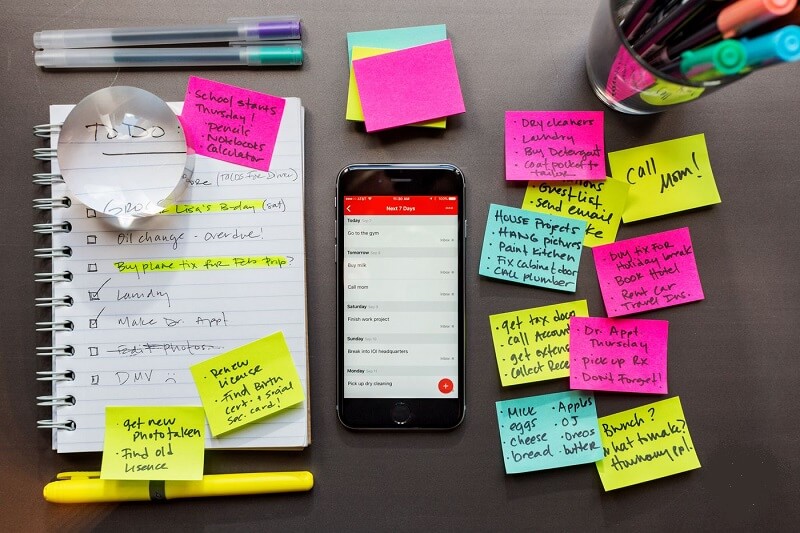 To Do:
School starts
Thursday!
• Pencils
• Notebooks
• Calculator
(TACOS for Dinner)
Lisa's B-day (sat)
Oil change - Overdue!
Buy plane tix for Feb trip?
Laundry
Make Dr. Appt
Edit photos
DMV
• Renew
License
• Find Birth
cert. + social
sec. card!
• get new
photo taken
• Find old
Lisence
AT&T
11:35 AM
100%
Next 7 Days
Today
Go to the gym
Inbox
Tomorrow
Buy milk
Inbox
Call mom
Inbox
Saturday
Finish work project
Inbox
Sunday
Break into IOI headquarters
Inbox
Monday
Pick up dry cleaning
• Dry cleaners
• Laundry
• Buy Detergent
• Coat pocket to
tailor
Call
Mom!
• Guest List
• send email
House Projects
• Hang pictures
• Paint kitchen
• Fix cabinet door
• Call plumber
• Buy tix for
Holiday break
• Book Hotel
• Rent Car
• Travel Ins.
• get tax docs
• call Account
• get extens
• Collect Rece
• Dr. Appt
Thursday
• pick up Rx
• Don't Forget!
• Milk
• eggs
• cheese
• bread
• Apples
• OJ
• Oreos
• butter
Brunch?
What to make?